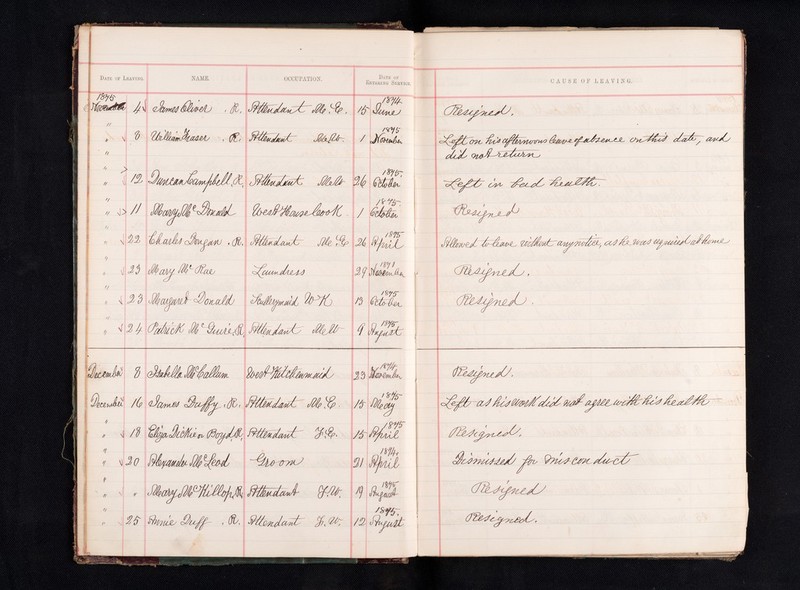 DATE OF LEAVING. NAME. OCCUPATION. DATE OF ENTERING SERVICE. CAUSE OF LEAVING.
1875
November 4 James Oliver . R. Attendant M. E. 15 June 1874. Resigned.
" " 8 William Fraser . R. Attendant M. W. 1 November 1875 Left on his afternoons leave of absence on this date, and
did not return
" " 12 Duncan Campbell, R. Attendant M W 26 October 1875. Left in bad health.
" " 11 Mary Mc Donald West House Cook . 1 October 1875 Resigned
" " 22 Charles . R. Attendant M. E. 26 April 1875 Allowed to leave without any notice, as he was required at home
" " 23 Mary Mc Rae Laundress 29 November 1871 Resigned.
" " 23 Margaret Donald Scullerymaid W K 13 October 1875 Resigned.
" " 24 Patrick Mc R. Attendant M W 9 August 1875
December 8 Isabella McCallum West Kitchenmaid 23 November 1874 Resigned.
December 16 James Duffy . R. Attendant M. E. 15 May 1875 Left as his work did not agree with his health
" 18 Eliza Dickie or Boyd R. Attendant F. E. 15 April 1875 Resigned.
" " 20 Alexander McLeod Groom 21 April 1874. Dismissed for misconduct
" " " Mary McKillop, R Attendant F. W. 19 August 1875 Resigned
" " 25 Annie Duff . R. Attendant F. W. 12 August 1875. Resigned.